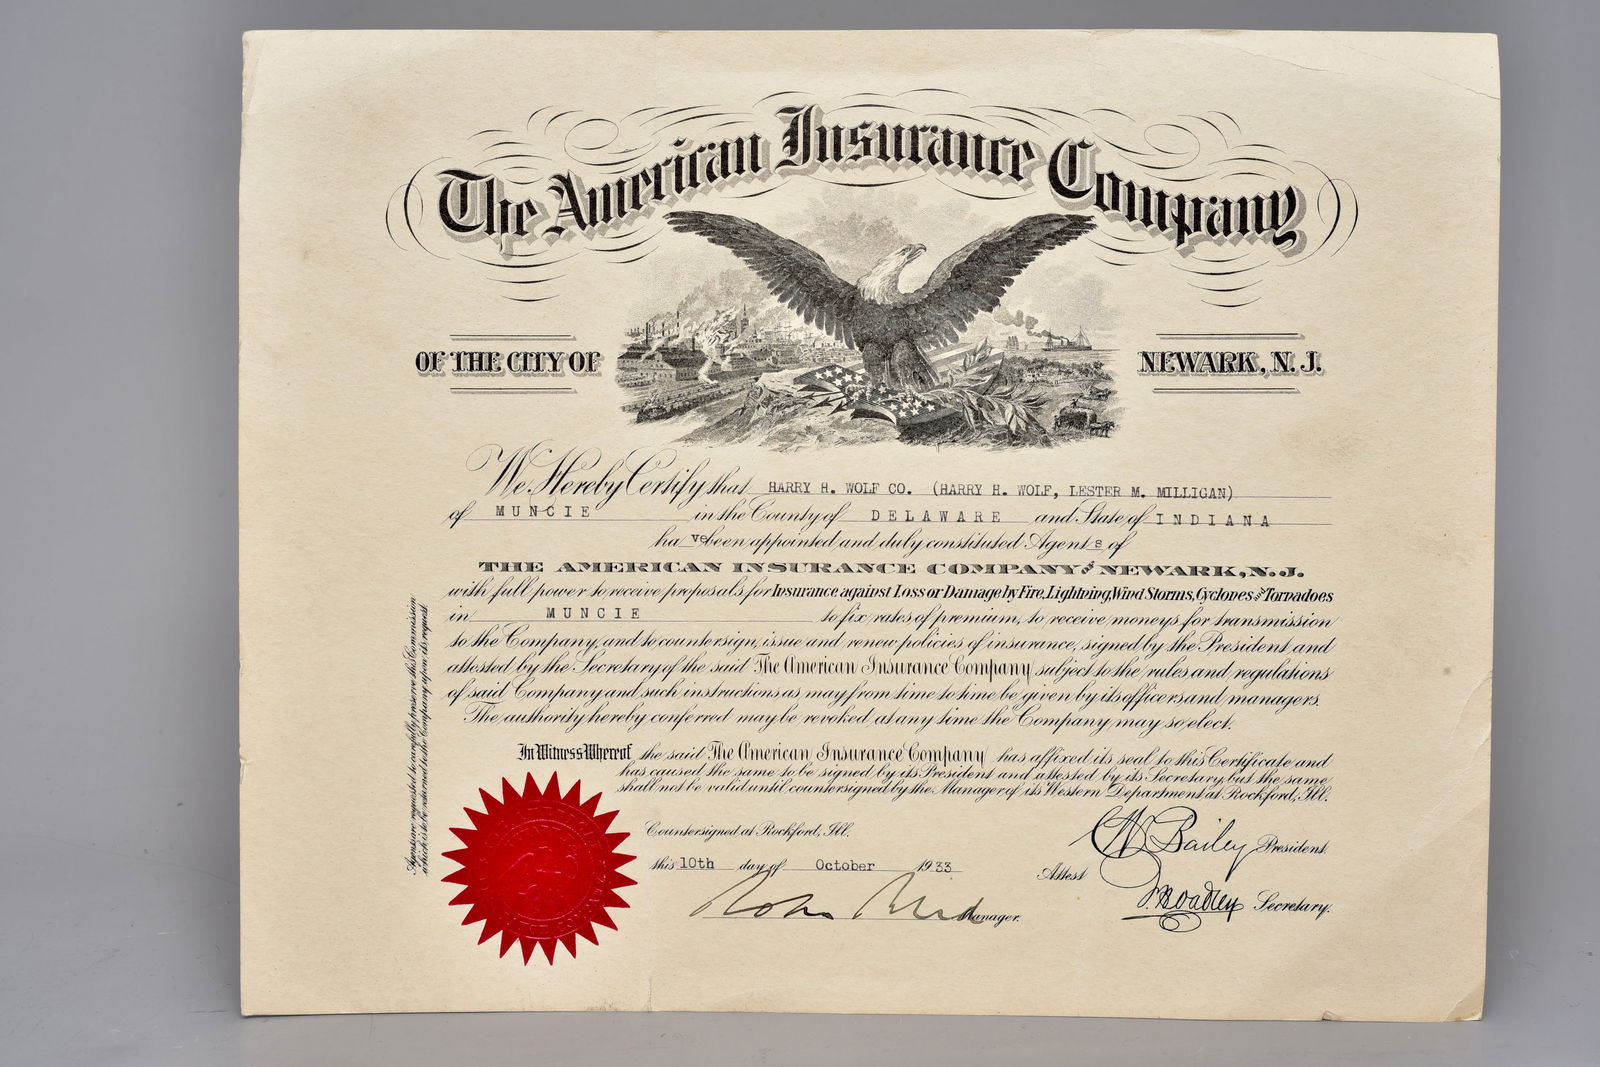 The American Insurance Company
OF THE CITY OF NEWARK, N. J.
We Hereby Certify that HARRY H. WOLF CO. (HARRY H. WOLF, LESTER M. MILLIGAN)
of MUNCIE in the County of DELAWARE and State of INDIANA
ha ve been appointed and duly constituted Agent s of
THE AMERICAN INSURANCE COMPANY OF NEWARK, N. J.
with full power to receive proposals for Insurance against Loss or Damage by Fire, Lightning, Wind Storms, Cyclones and Tornadoes
in MUNCIE to fix rates of premium, to receive moneys for transmission
to the Company, and to countersign, issue and renew policies of insurance, signed by the President and
attested by the Secretary of the said The American Insurance Company subject to the rules and regulations
of said Company and such instructions as may from time to time be given by its officers and managers.
The authority hereby conferred may be revoked at any time the Company may so elect.
In Witness Whereof the said The American Insurance Company has affixed its seal to this Certificate and
has caused the same to be signed by its President and attested by its Secretary, but the same
shall not be valid until countersigned by the Manager of its Western Department at Rockford, Ill.
Countersigned at Rockford, Ill.
this 10th day of October 1933
Manager.
Bailey President.
Attest
Secretary.
Agents are requested to carefully preserve this Commission
which is to be returned to the Company upon its request